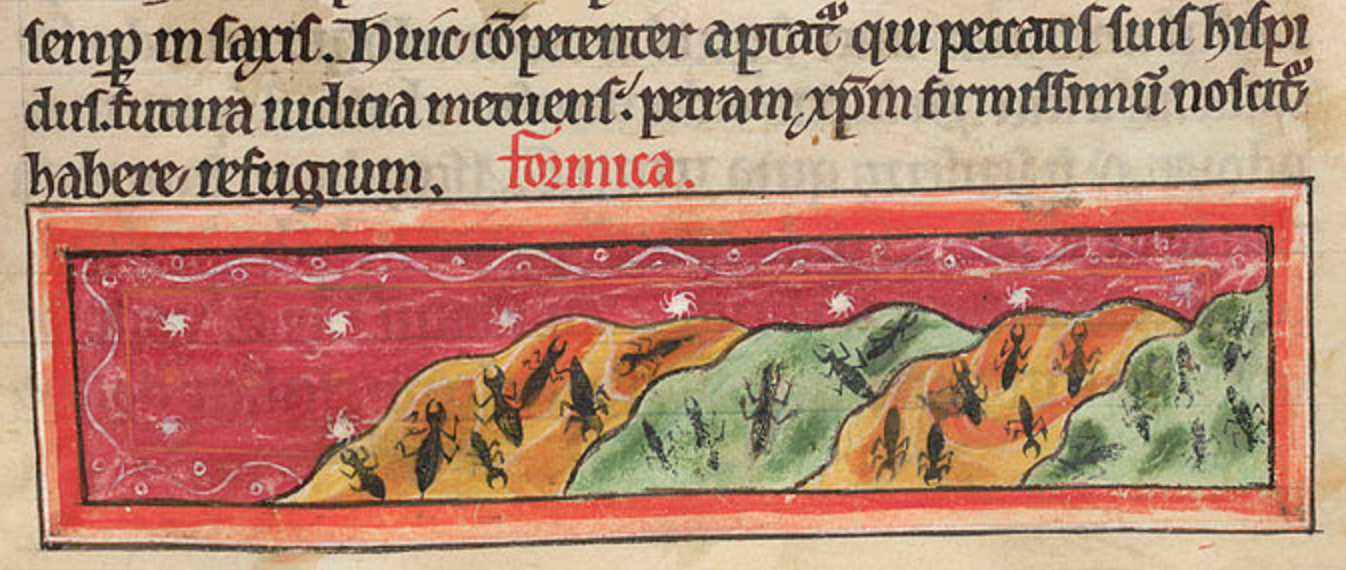 semp̲ in saxis. Huic cōpetenter aptat᷑ qui peccatis suis hispi
dus. futura iudicia metuens: petram xp̄m firmissimū noscit᷑
habere refugium. formica.